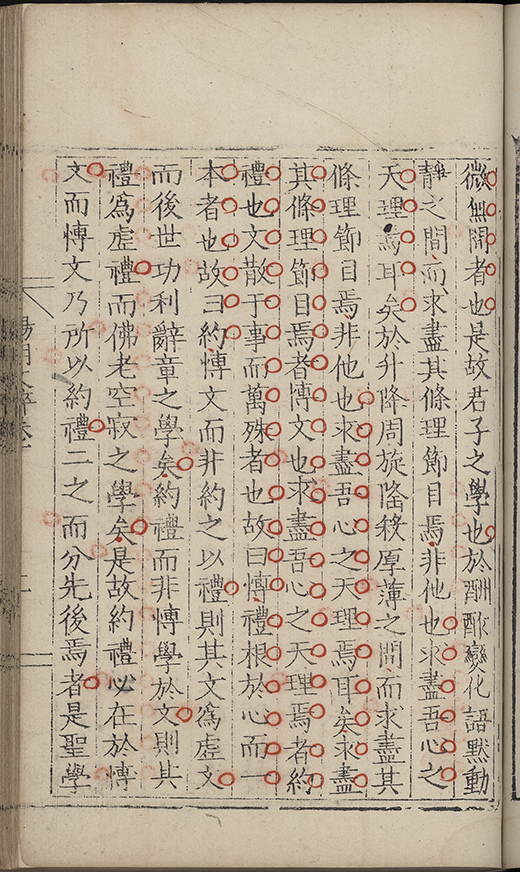 微無間者也是故君子之學也於酬酢變化語默動
靜之間而求盡其條理節目焉非他也求盡吾心之
天理焉耳矣於升降周旋隆殺厚薄之間而求盡其
條理節目焉非他也求盡吾心之天理焉耳矣求盡
其條理節目焉者博文也求盡吾心之天理焉者約
禮也文散于事而萬殊者也故曰博禮根於心而一
本者也故曰約博文而非約之以禮則其文爲虛文
而後世功利辭章之學矣約禮而非博學於文則其
禮爲虛禮而佛老空寂之學矣是故約禮必在於博
文而博文乃所以約禮二之而分先後焉者是聖學